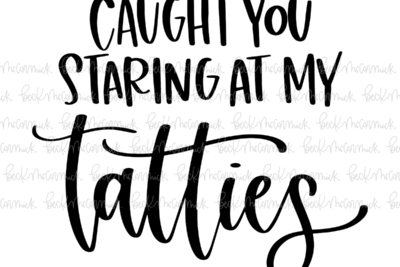 CAUGHT YOU
STARING AT MY
tatties